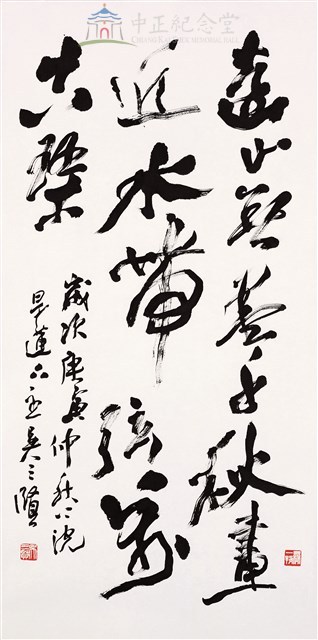 中正紀念堂
CHIANG KAI-SHEK MEMORIAL HALL
遠山千秋畫
近水帶弦萬
古琴
歲次庚寅仲秋上浣
吳三賢